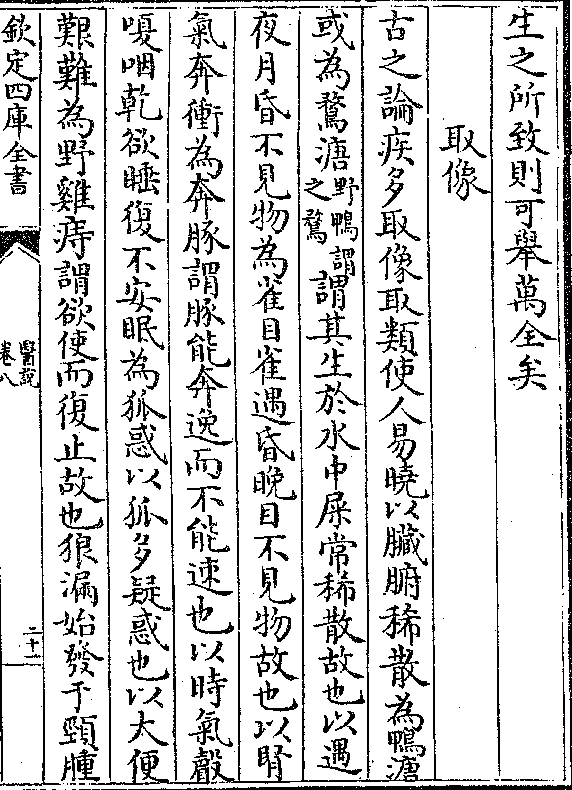 生之所致則可舉萬全矣
取像
古之論疾多取像取類使人易曉以臟腑稀散為鴨溏
或為鶩溏野鴨謂之鶩謂其生於水中屎常稀散故也以遇
夜月昏不見物為雀目雀遇昏晚目不見物故也以腎
氣奔衝為奔豚謂豚能奔逸而不能速也以時氣聲
嗄咽乾欲睡復不安眠為狐惑以狐多疑惑也以大便
艱難為野雞痔謂欲使而復止故也狼漏始發于頸腫
欽定四庫全書
醫說
卷八
二十一